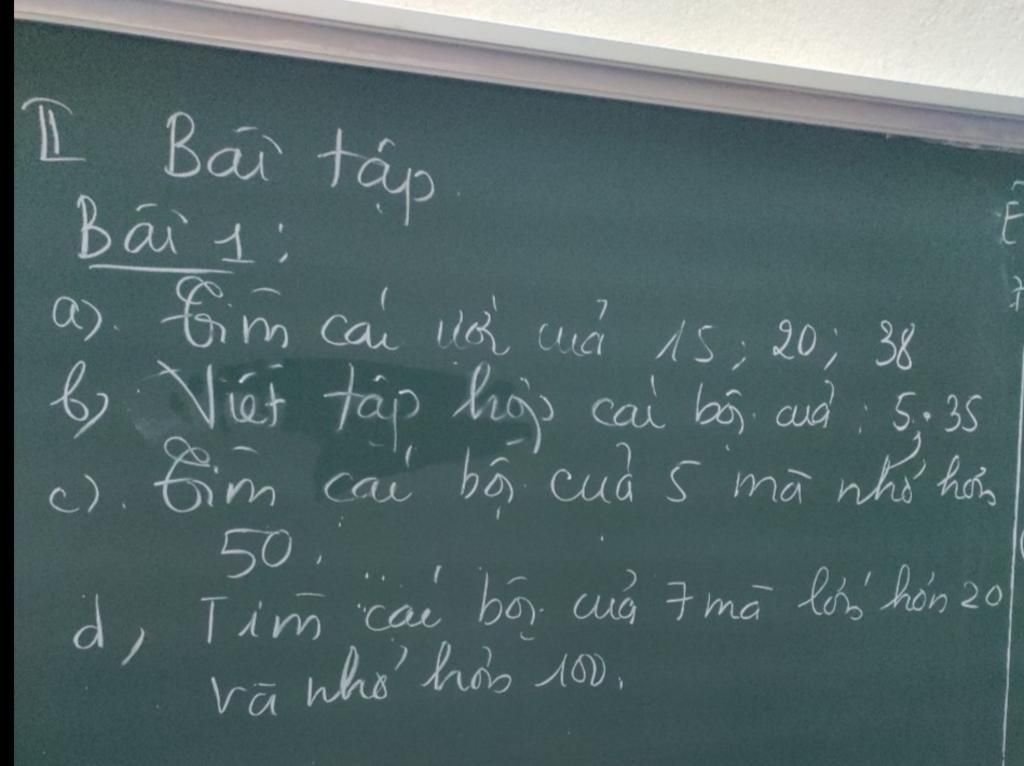 II Bài tập.
Bài 1:
a). Tìm các ước của 15; 20; 38
b) Viết tập hợp các bội của: 5; 35
c). Tìm các bội của 5 mà nhỏ hơn
50.
d, Tìm các bội của 7 mà lớn hơn 20
và nhỏ hơn 100.